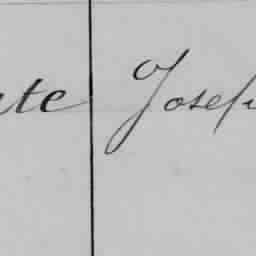 ate Josef